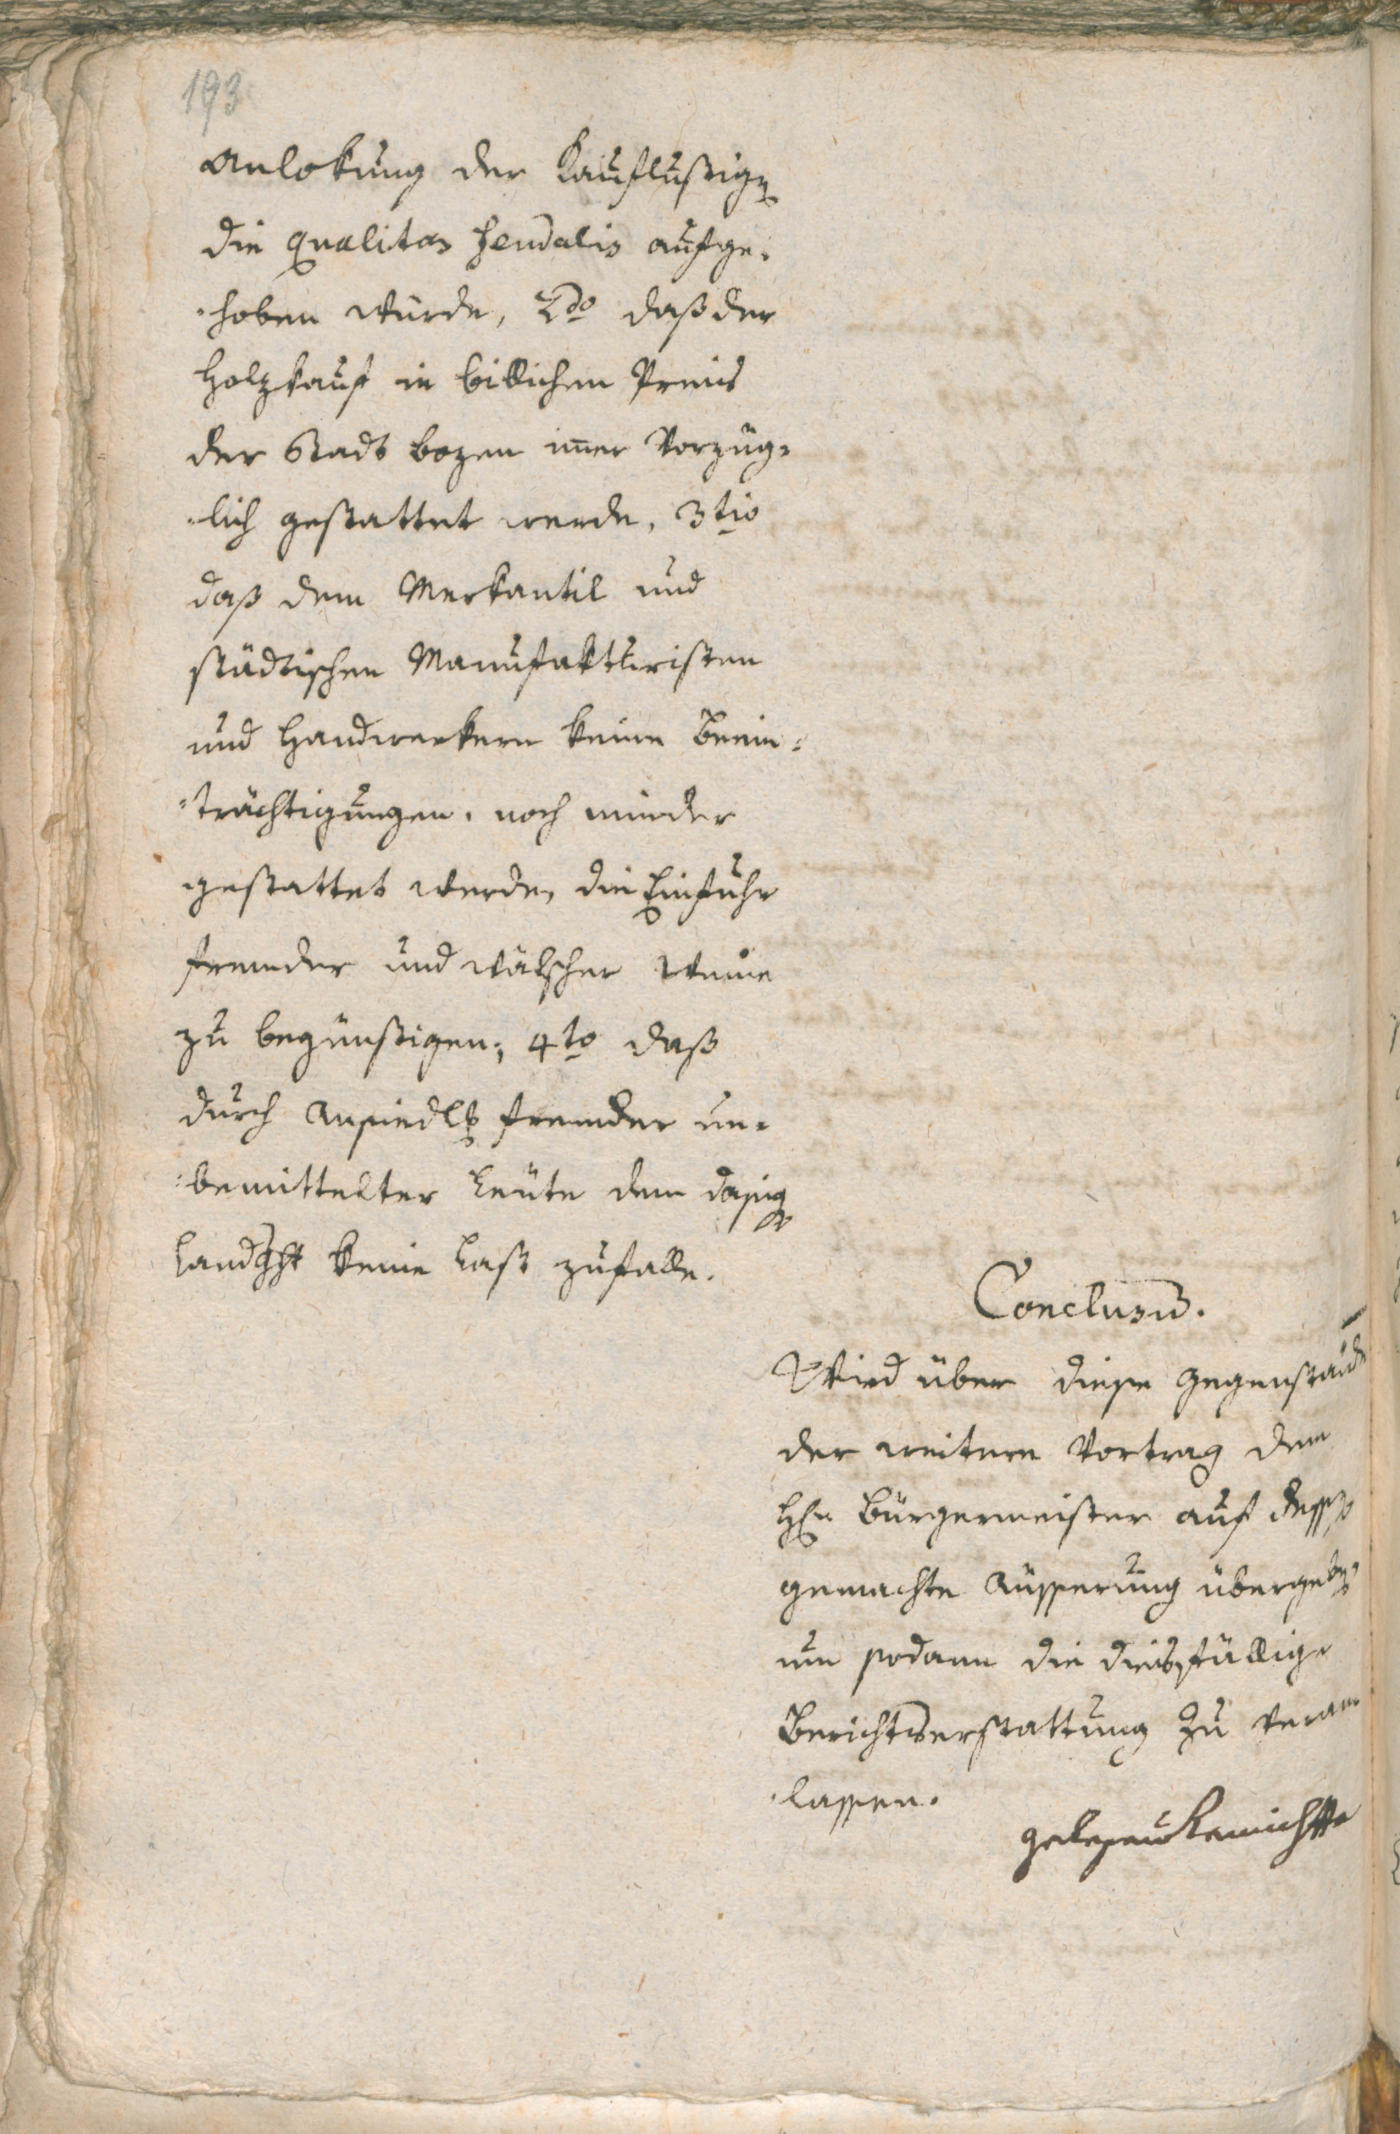 193
Anlokung der Kauflustigen
die qualitas feudalis aufge-
-hoben würde, 2do daß der
Holzkauf in billichen Preis
der Stadt bozen imer vorzüg-
-lich gestattet werde, 3tio
daß dem Merkantil und
städtischen Manufakturisten
und Handwerkern keine Beein-
-trächtigungen, noch minder
gestattet werde, die Einfuhr
fremder und wälscher Weine
zu begünstigen; 4to daß
durch Ansiedlg fremder un-
-bemittelter Leute dem dasigen
Landgcht keine Last zufalle.
Conclusum.
Wird über diese Gegenstände
der weitere Vortrag dem
Hen Bürgermeister auf dessen
gemachte Äusserung übergeben,
um sodann die diesfällige
Berichtserstattung zu veran
-lassen.